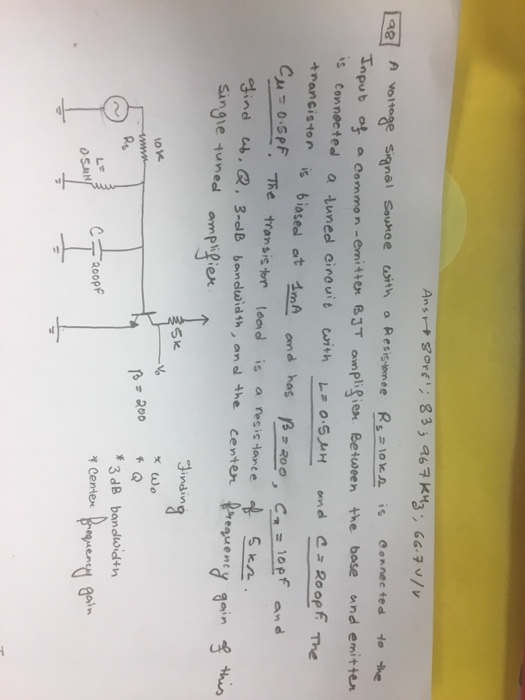 Ansr→ 80rs⁻¹; 83; 967 kHz; 66.7 V/V
98 A voltage signal source with a Resistance Rs = 10kΩ is connected to the
Input of a common-emitter BJT amplifier. Between the base and emitter
is connected a tuned circuit with L = 0.5μH and C = 200pF. The
transistor is biased at 1mA and has β = 200, Cπ = 10pF and
Cμ = 0.5pF. The transistor load is a resistance of 5kΩ.
find ω₀, Q, 3-dB bandwidth, and the center frequency gain of this
single tuned amplifier
10k
Rs
L =
0.5μH
C
200pF
5k
Vo
β = 200
Finding
* ω₀
* Q
* 3dB bandwidth
* center frequency gain